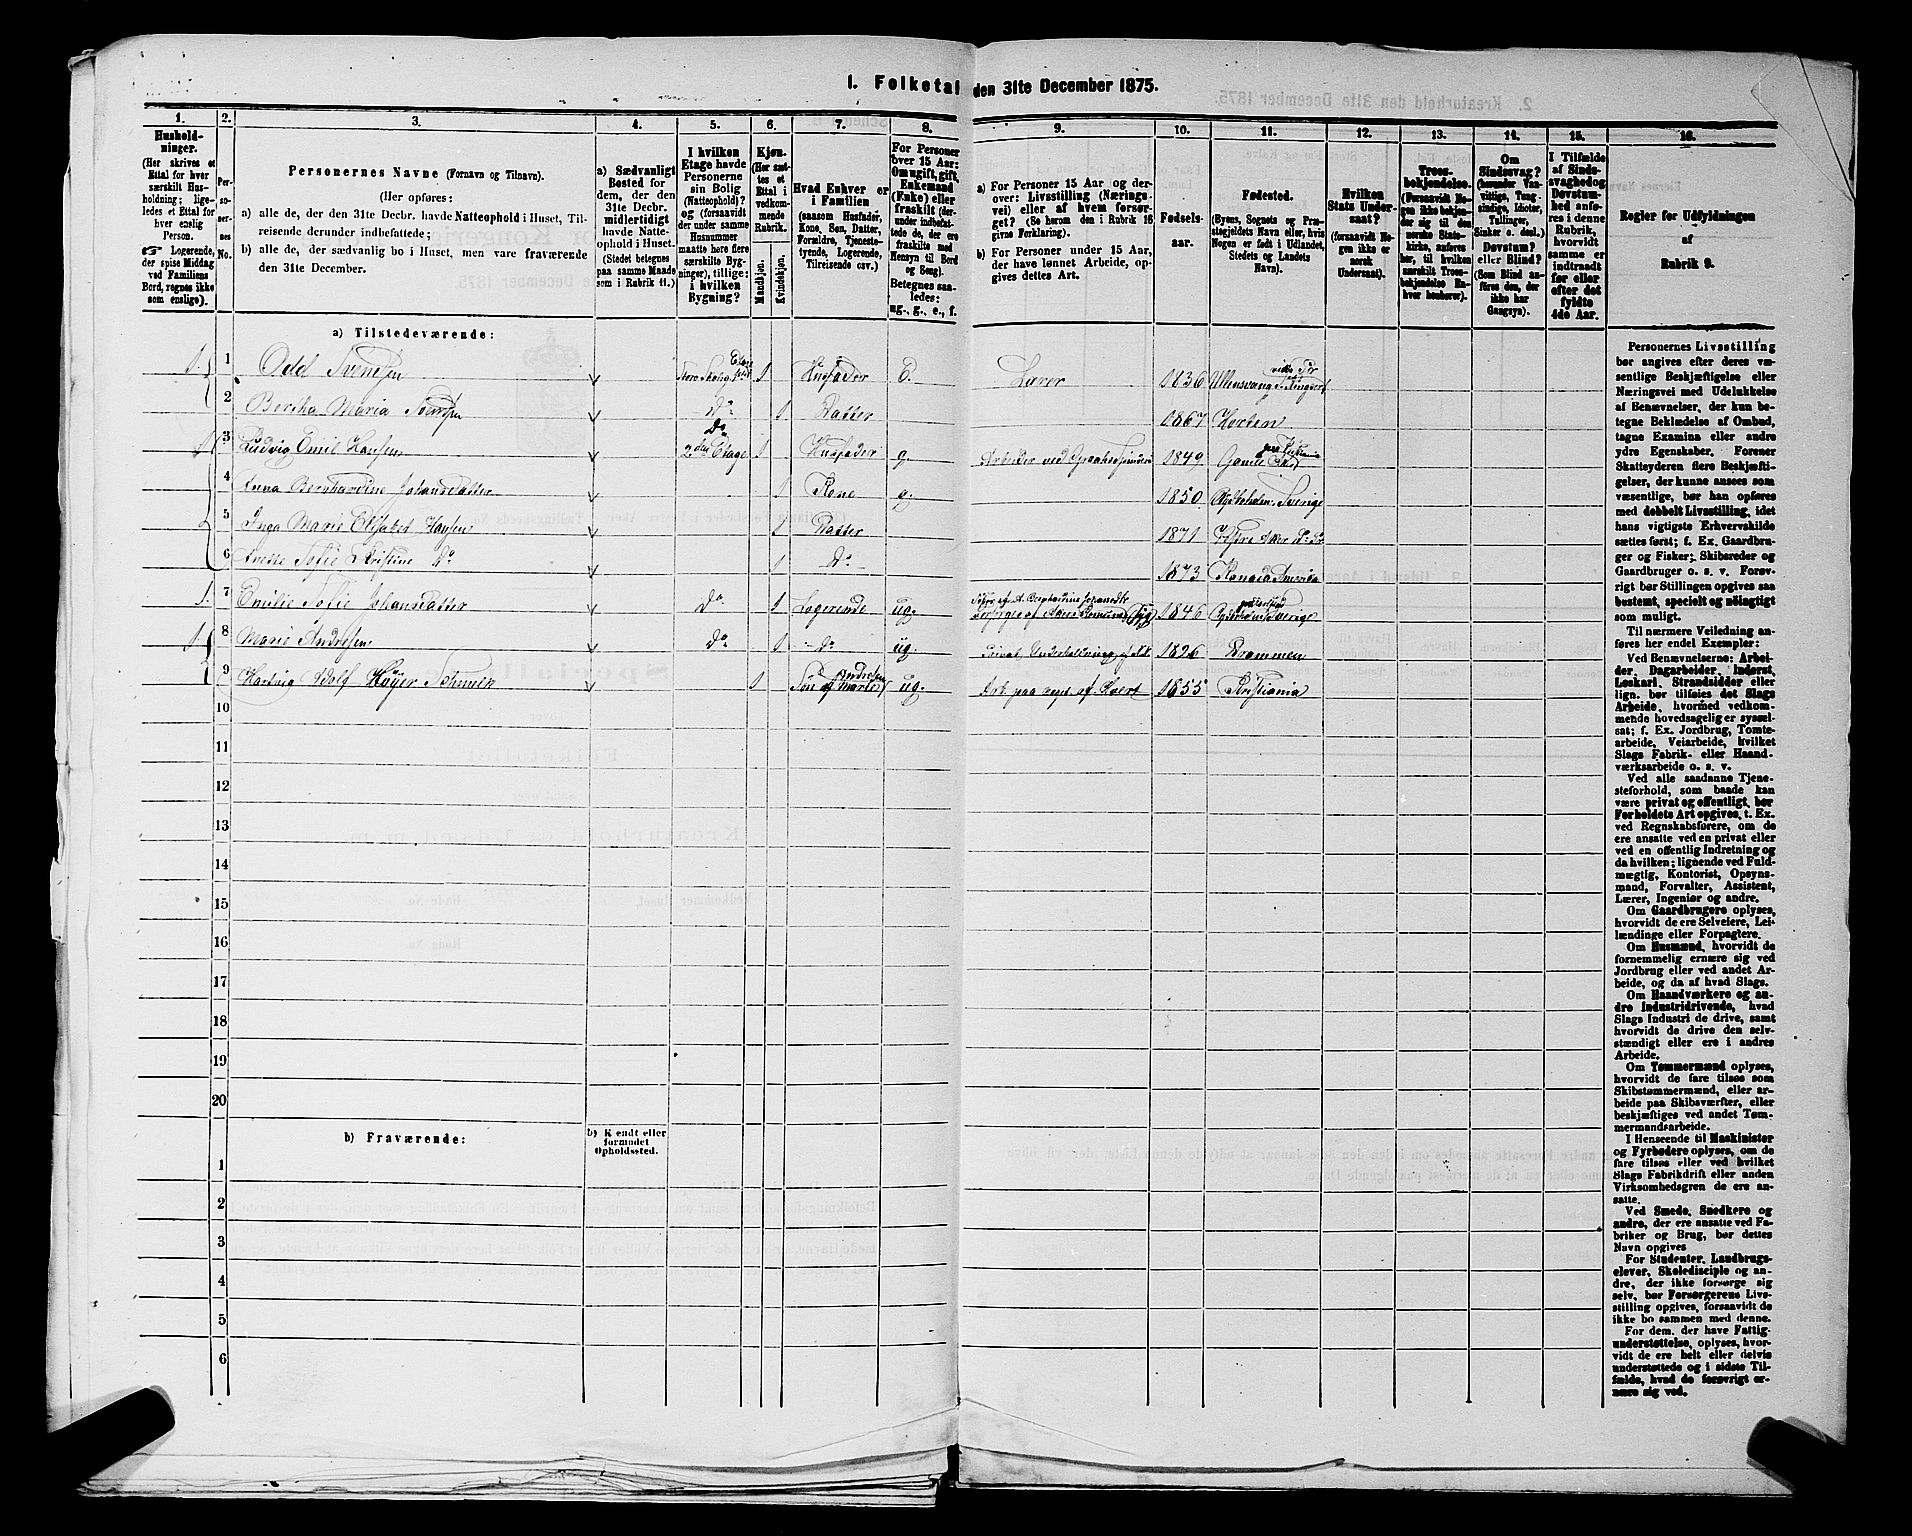 1. Folketal den 31te December 1875.
1.
Hushold-
ninger.
(Her skrives et
Ettal for hver
særskilt Hus-
holdning; lige-
ledes et Ettal for
hver enslig
Person.
Logerende,
der spise Middag
ved Familiens
Bord, regnes ikke
som enslige).
2.
Per-
so-
ner-
nes
No.
3.
Personernes Navne (Fornavn og Tilnavn).
(Her opføres:
a) alle de, der den 31te Decbr. havde Natteophold i Huset, Til-
reisende derunder indbefattede;
b) alle de, der sædvanlig bo i Huset, men vare fraværende
den 31te December.
4.
a) Sædvanligt
Bosted for
dem, der den
31te Decbr.
midlertidigt
havde Natte-
ophold i Huset.
(Stedet betegnes
paa samme Maade
som i Rubrik 11.)
5.
I hvilken
Etage havde
Personerne
sin Bolig
(Natteophold)?
og (forsaavidt
der under samme
Husnummer
maatte høre flere
særskilte Byg-
ninger), tillige:
i hvilken
Bygning?
6.
Kjøn.
(Her sæt-
tes et
Ettal i
vedkom-
mende
Rubrik.
Mandkjøn.
Kvindekjøn.
7.
Hvad Enhver er
i Familien
(saasom Husfader,
Kone, Søn, Datter,
Forældre, Tjeneste-
tyende, Logerende,
Tilreisende osv.)
8.
For Personer
over 15 Aar:
Om ugift, gift,
Enkemand
(Enke) eller
fraskilt (der-
under indbefat-
tede de, der ere
fraskilte med
Hensyn til Bord
og Seng).
Betegnes saa-
ledes:
ug., g., e., f.
9.
a) For Personer 15 Aar og der-
over: Livsstilling (Nærings-
vei) eller af hvem forsør-
get. (Se herom den i Rubrik 16
givne Forklaring).
b) For Personer under 15 Aar,
der have lønnet Arbeide, op-
gives dettes Art.
10.
Fødsels-
aar.
11.
Fødested.
(Byens, Sognets og Præ-
stegjeldets Navn eller, hvis
Nogen er født i Udlandet,
Stedets og Landets
Navn).
12.
Hvilken
Stats Under-
saat?
(forsaavidt No-
gen ikke er
norsk
Undersaat).
13.
Troes-
bekjendelse.
(Forsaavidt No-
gen ikke bekjen-
der sig til den
norske Stats-
kirke, anføres
her, til hvilken
særskilt Troes-
bekjendelse En-
hver henhører).
14.
Om
Sindssvag?
(herunder Van-
vittige, Tung-
sindige, Idioter,
Tullinger,
Sinker o. desl.).
Døvstum?
eller Blind?
(Som Blind an-
føres den, der
ikke har
Gangsyn).
15.
I Tilfælde
af Sinds-
svaghed og
Døvstum-
hed anfø-
res i denne
Rubrik,
hvorvidt
samme er
indtraadt
før eller
efter det
fyldte
4de Aar.
16.
Regler for Udfyldningen
af
Rubrik 9.
a) Tilstedeværende:
1. 1 Odd Svensen Store Skolig 1ste Etage 1 Husfader E. Lærer 1836 Ullensvang
2 Bertha Maria Svensen Do 1 Datter 1867 Horten
1. 3 Ludvig Emil Hansen Do 2den Etage 1 Husfader g. Arbeider ved 1849 Gamle Aker
4 Anna Bernhardine Johansdatter 1 Kone g. 1850 Sverige
5 Inga Marie Elisabet Hansen 1 Datter 1871 Vestre Aker
6 Anette Sofie Kristine Do 1 Do 1873 Kanada Amerika
1. 7 Emilie Sofie Johansdatter Do 1 Logerende ug. 1846 Sverige
1. 8 Marie Andresen Do 1 Do ug. Privat Underholdning 1826 Drammen
9 Hartvig Adolf Høyer Schmidt 1 Søn af Marie Andresen ug. 1855 Kristiania
10
11
12
13
14
15
16
17
18
19
20
b) Fraværende:
b) Kjendt eller
formodet
Opholdssted.
1
2
3
4
5
6
Personernes Livsstilling
bør angives efter deres væ-
sentlige Beskjæftigelse eller
Næringsvei med Udelukkelse
af Benævnelser, der kun be-
tegne Beklædelse af Ombud,
tagne Examina eller andre
ydre Egenskaber. Forener
Skatteyderen flere Beskjæfti-
gelser, der kunne ansees som
væsentlige, bør han opføres
med dobbelt Livsstilling, idet
hans vigtigste Erhvervskilde
sættes først; f. Ex. Gaardbru-
ger og Fisker; Skibsreder og
Gaardbruger o. s. v. Forøv-
rigt bør Stillingen opgives saa
bestemt, specielt og nøiagtigt
som muligt.
Til nærmere Veiledning an-
føres her endel Exempler:
Ved Benævnelserne: Arbei-
der, Dagarbeider, Inderst,
Løskarl, Strandsidder eller
lign. bør tilføies det Slags
Arbeide, hvormed vedkom-
mende hovedsagelig er syssel-
sat; f. Ex. Jordbrug, Tomte-
arbeide, Veiarbeide, hvilket
Slags Fabrik- eller Haand-
værksarbeide o. s. v.
Ved alle saadanne Tjene-
steforhold, som baade kan
være privat og offentligt, bør
Forholdets Art opgives, t. Ex.
ved Regnskabsførere, om de
ere ansatte ved en privat eller
ved en offentlig Indretning og
da hvilken; lignende ved Fuld-
mægtig, Kontorist, Opsyns-
mand, Forvalter, Assistent,
Lærer, Ingeniør og andre.
Om Gaardbrugere oplyses,
hvorvidt de ere Selveiere, Lei-
lændinge eller Forpagtere.
Om Husmænd, hvorvidt de
fornemmelig ernære sig ved
Jordbrug eller ved andet Ar-
beide, og da af hvad Slags.
Om Haandværkere og an-
dre Industridrivende, hvad
Slags Industri de drive, samt
hvorvidt de drive den selv-
stændigt eller ere i andres
Arbeide.
Om Tømmermænd oplyses,
hvorvidt de fare tilsøs som
Skibstømmermænd, eller ar-
beide paa Skibsværfter, eller
beskjæftiges ved andet Tøm-
mermandsarbeide.
I Henseende til Maskinister
og Fyrbødere oplyses, om de
fare tilsøs eller ved hvilket
Slags Fabrikdrift eller anden
Virksomhedsgren de ere an-
satte.
Ved Smede, Snedkere og
andre, der ere ansatte ved Fa-
briker og Brug, bør dettes
Navn opgives
For Studenter, Landbrugs-
elever, Skoledisciple og an-
dre, der ikke forsørge sig
selv, bør Forsørgerens Livs-
stilling opgives, forsaavidt de
ikke bo sammen med denne.
For dem, der have Fattig-
understøttelse, oplyses, hvor-
vidt de ere helt eller delvis
understøttede og i sidste Til-
fælde, hvad de forøvrigt er-
nære sig ved.